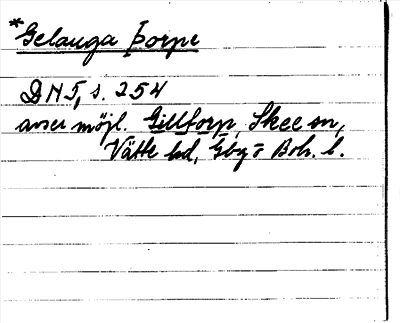 *Gelauga Þorpe
DN 5, s. 254
avser möjl. Gilltorp, Skee sn,
Vätte hd, Gbg o Boh. l.